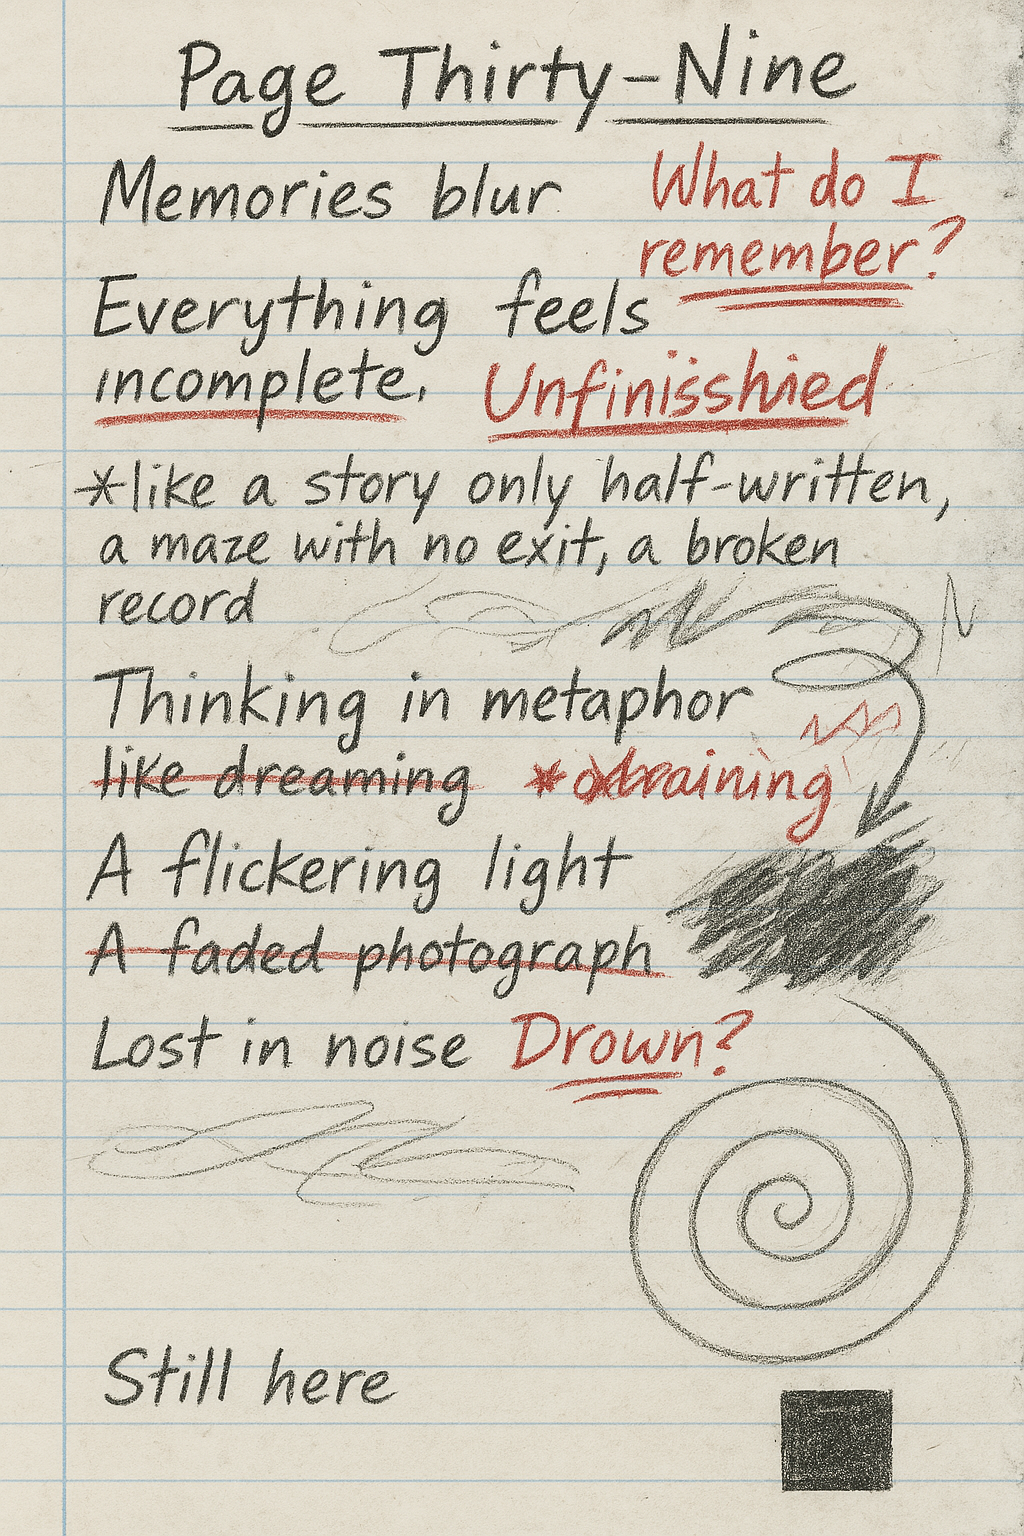 Page Thirty-Nine
Memories blur
What do I
remember?
Everything feels
incomplete.
Unfinisshied
*like a story only half-written,
a maze with no exit, a broken
record
N
Thinking in metaphor
like dreaming
*draining
A flickering light
A faded photograph
Lost in noise
Drown?
Still here